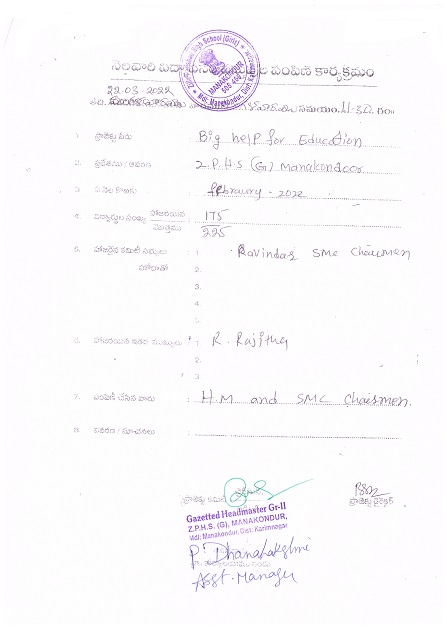 Zilla Parishad High School (Girls)
MANAKONDUR
505 469
Mdl: Manakondur, Dist: Karimnagar
నెలవారి విద్యా పంపిణి కార్యక్రమం
22-03-2022
తేది. సమయం. 11-30 గం॥
1. ప్రాజెక్టు పేరు : Big help for Education
2. ప్రదేశము / ఆవరణ : Z.P.H.S (G) Manakondoor
3. ఏ నెల కొరకు : february - 2022
4. విద్యార్థుల సంఖ్య హాజరయిన : 175
మొత్తము 225
5. హాజరైన కమిటీ సభ్యులు : 1. Ravindar SMC Chairmen
హోదాతో 2.
3.
4.
5.
6. హాజరయిన ఇతర ముఖ్యులు : 1. R. Rajitha
2.
3.
7. పంపిణి చేసిన వారు : H.M and SMC Chairmen.
8. వివరణ / సూచనలు :
ప్రాజెక్టు కమిటీ
ప్రాజెక్టు డైరెక్టర్
Gazetted Headmaster Gr-II
Z.P.H.S. (G), MANAKONDUR,
Mdl: Manakondur, Dist: Karimnagar
P. Dhanalakshmi
Asst. Manager